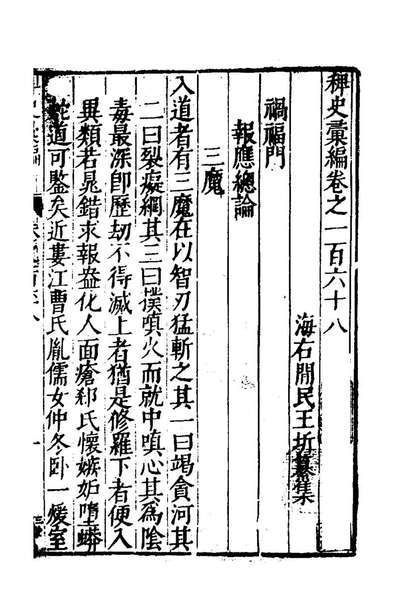 稗史彙編卷之一百六十八
海右閒民王圻纂集
禍福門
報應總論
三魔
入道者有三魔在以智刃猛斬之其一曰竭貪河其
二曰裂癡網其三曰撲嗔火而就中嗔心其為陰
毒最深卽歷劫不得滅上者猶是修羅下者便入
異類若晁錯求報盎化人面瘡郗氏懷嫉妬墮蟒
蛇道可鑒矣近婁江曹氏胤儒女仲冬卧一煖室